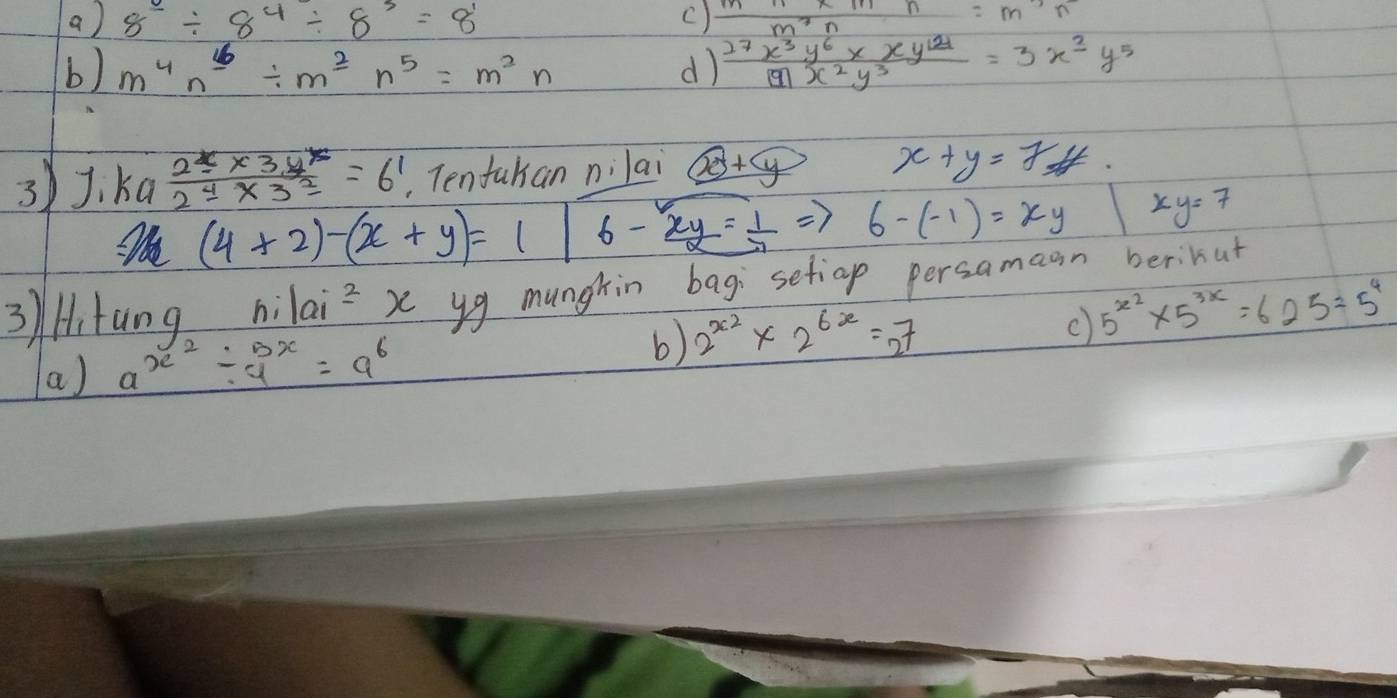 a) 8 ÷ 8⁴ ÷ 8³ = 8¹
c) m³n = m n
b) m⁴ n⁶ ÷ m² n⁵ = m² n
d) 27 x³ y⁶ × xy² / 9 x² y³ = 3x² y⁵
3) Jika 2ˣ × 3ʸ / 2⁴ × 3² = 6¹, Tentukan nilai x + y
x + y = 7 #.
(4 + 2) - (x + y) = 1 | 6 - xy = 1 => 6 - (-1) = xy | xy = 7
3) Hitung nilai² x yg mungkin bagi setiap persamaan berikut
a) aˣ² ÷ a⁵ˣ = a⁶
b) 2ˣ² × 2⁶ˣ = 27
c) 5ˣ² × 5³ˣ = 625 = 5⁴